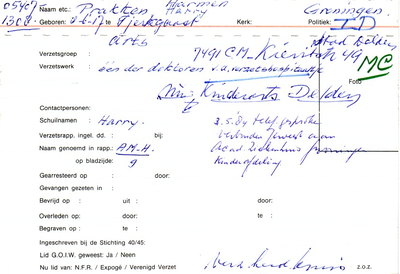 05407 Naam etc.: Prakken Harmen Groningen
Harry
1308: Geboren: 4-6-17 Tjerkgaast Kerk: Politiek: ID
arts Stad Delden
Verzetsgroep: 7491 CM - 49
Verzetswerk één der doktoren v.h. MC
Foto
Nu: Kinderarts Delden
te
Contactpersonen:
Schuilnaam : Harry. 3.5.84 telef. gesprek
Verzetsrapp. ingel. dd.: bij:
Naam genoemd in rapp.: AM-H. Acad. Ziekenhuis Groningen
op bladzijde: 9 Kinderafdeling
Gearresteerd op : door:
Gevangen gezeten in:
Bevrijd op : uit : door:
Overleden op : door: te :
Begraven op : te :
Ingeschreven bij de Stichting 40/45:
Lid G.O.I.W. geweest: Ja / Neen
Nu lid van: N.F.R. / Expogé / Verenigd Verzet z.o.z.